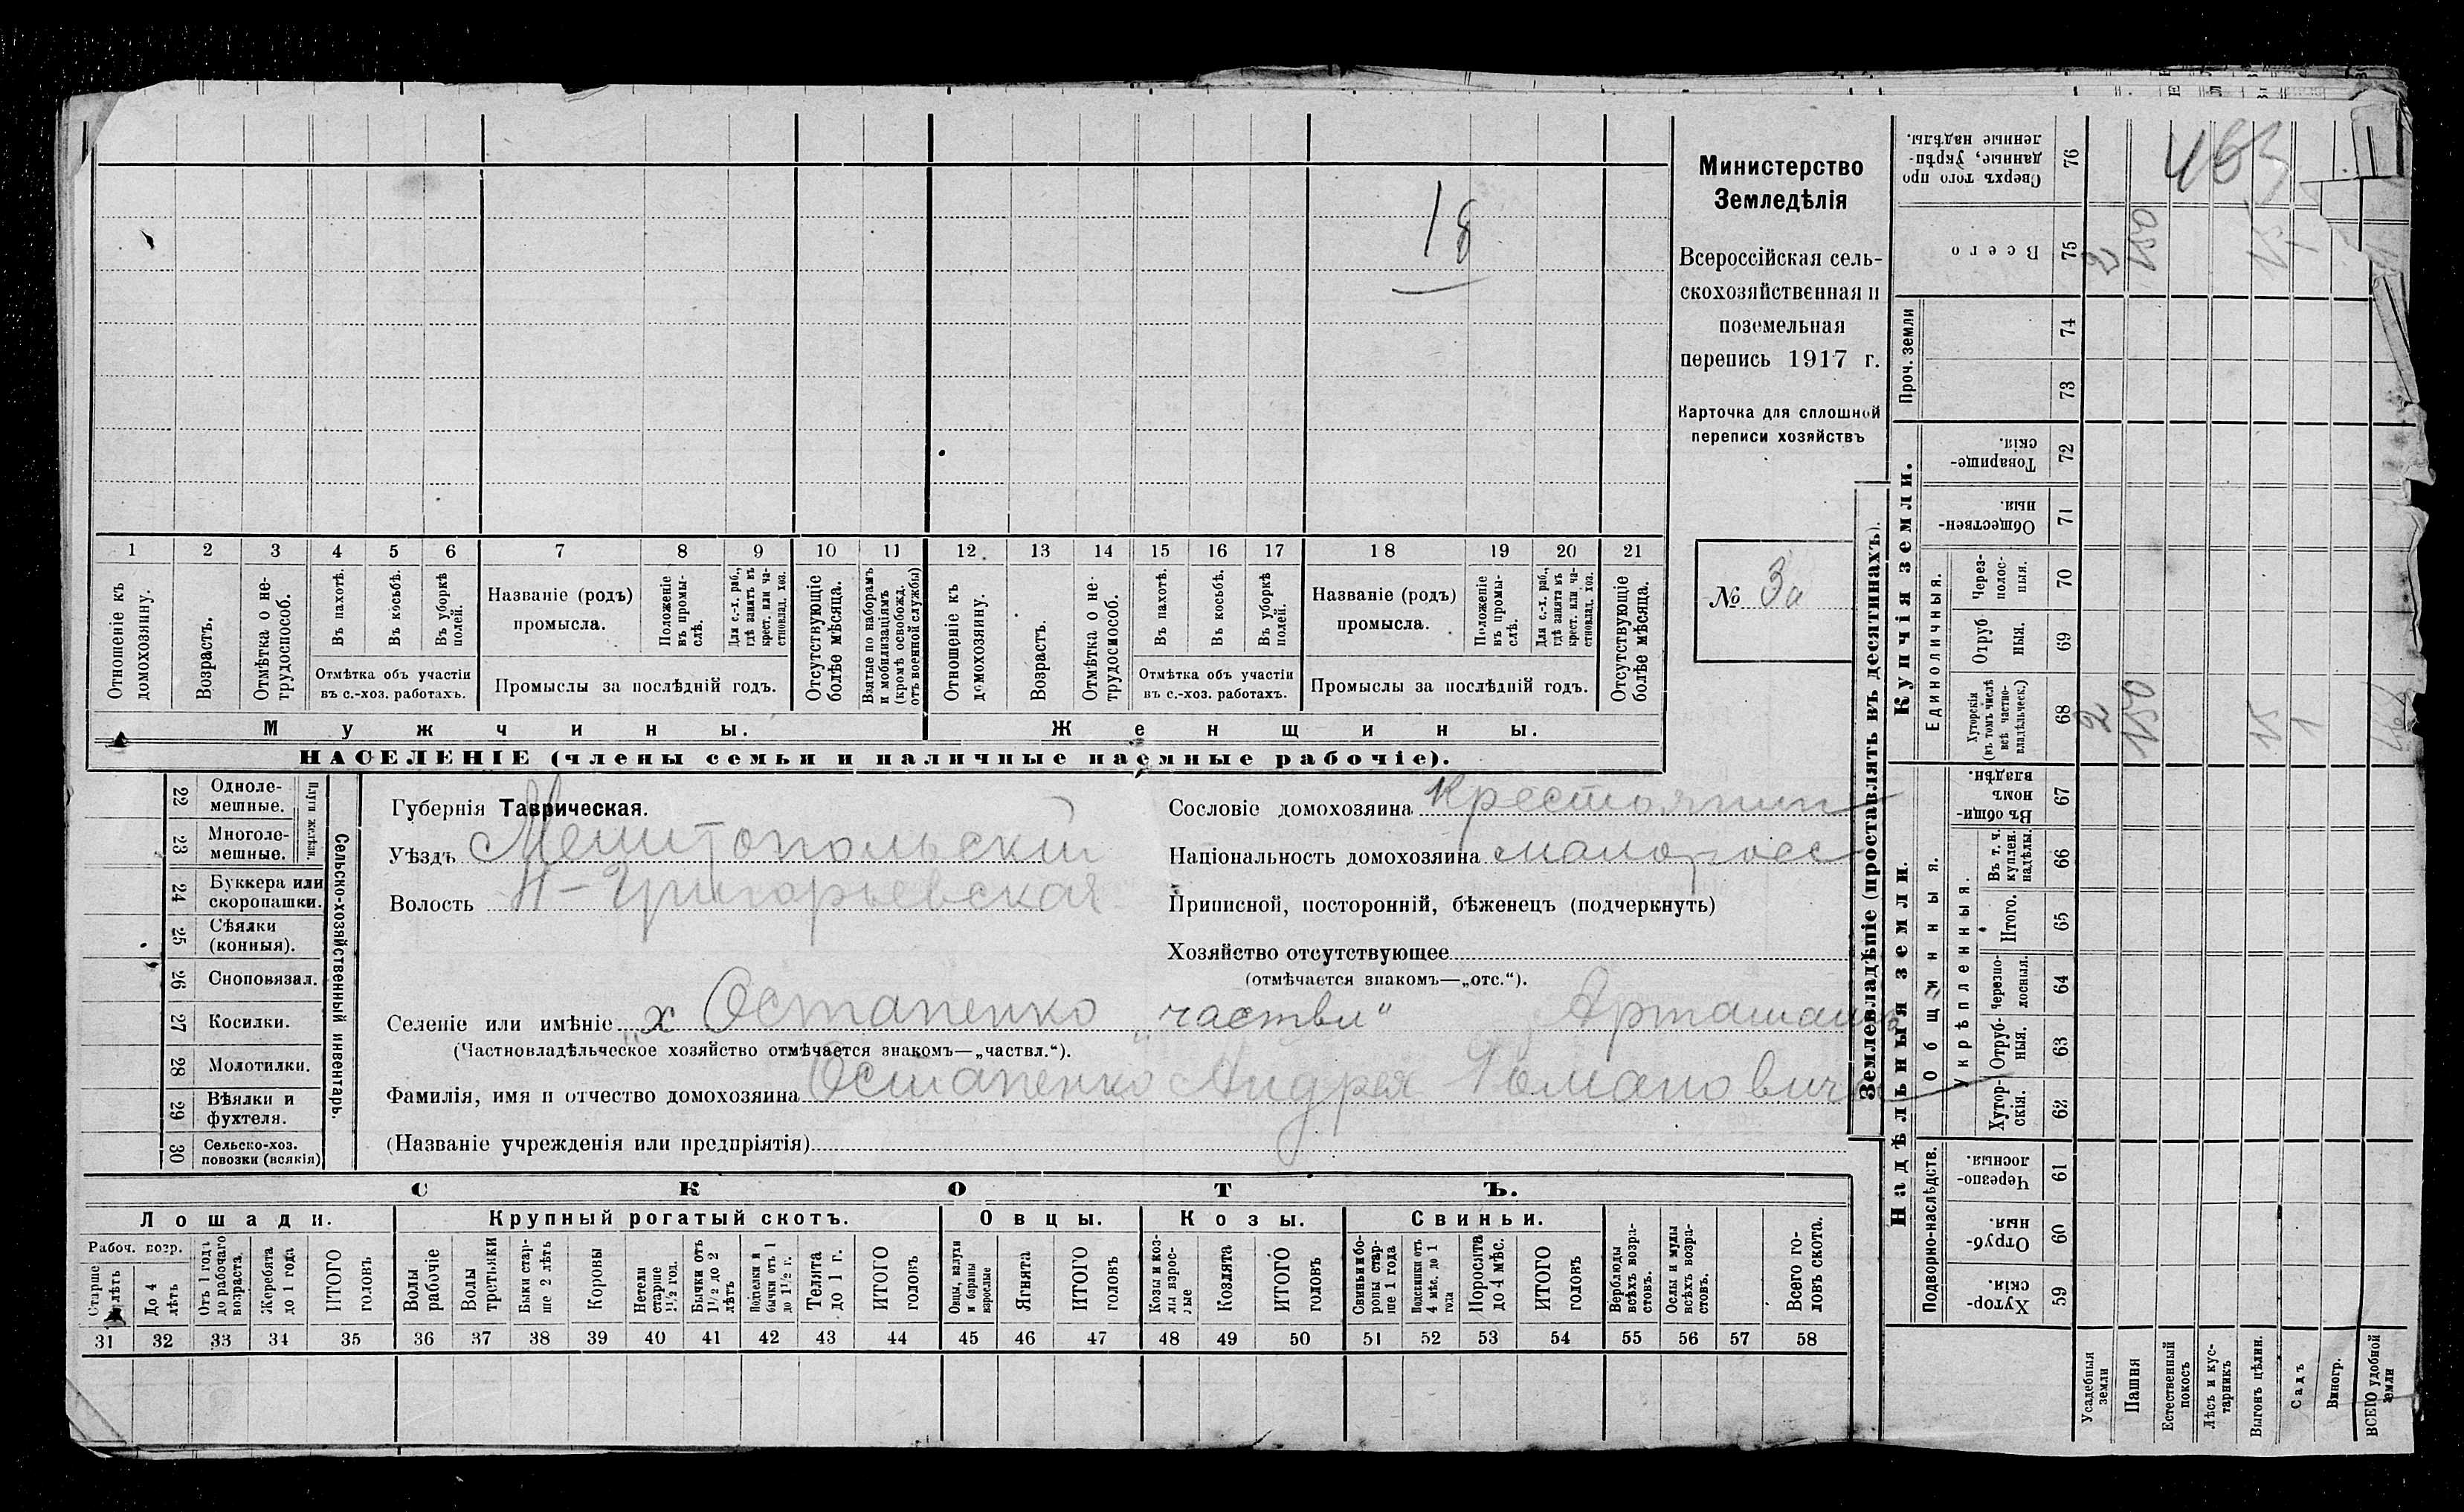 18
1 2 3 4 5 6 7 8 9 10 11 12 13 14 15 16 17 18 19 20 21
Отношеніе къ домохозяину.
Возрастъ.
Отмѣтка о не-трудоспособ.
Въ пахотѣ.
Въ косьбѣ.
Въ уборкѣ полей.
Отмѣтка объ участіи
въ с.-хоз. работахъ.
Названіе (родъ)
промысла.
Положеніе въ промы-слѣ.
Для с.-х. раб., гдѣ занятъ въ крест. или ча-стновлад. хоз.
Промыслы за послѣдній годъ.
Отсутствующіе болѣе мѣсяца.
Взятые по наборамъ и мобилизаціямъ (кромѣ освобожд. отъ военной службы)
Отношеніе къ домохозяину.
Возрастъ.
Отмѣтка о не-трудоспособ.
Въ пахотѣ.
Въ косьбѣ.
Въ уборкѣ полей.
Отмѣтка объ участіи
въ с.-хоз. работахъ.
Названіе (родъ)
промысла.
Положеніе въ промы-слѣ.
Для с.-х. раб., гдѣ занята въ крест. или ча-стновлад. хоз.
Промыслы за послѣдній годъ.
Отсутствующіе болѣе мѣсяца.
Мужчины.
Женщины.
НАСЕЛЕНІЕ (члены семьи и наличные наемные рабочіе).
Министерство
Земледѣлія
Всероссійская сель-
скохозяйственная и
поземельная
перепись 1917 г.
Карточка для сплошной
переписи хозяйствъ
№ 3а
22 Однолемешные.
23 Многолемешные.
Плуги желѣзн.
24 Буккера или скоропашки.
25 Сѣялки (конныя).
26 Сноповязал.
27 Косилки.
28 Молотилки.
29 Вѣялки и фухтеля.
30 Сельско-хоз. повозки (всякія)
Сельско-хозяйственный инвентарь.
Губернія Таврическая.
Уѣздъ Мелитопольскій
Волость Н-Григорьевская
Селеніе или имѣніе „х Остапенко „частвл“
(Частновладѣльческое хозяйство отмѣчается знакомъ—„частвл.“).
Фамилія, имя и отчество домохозяина Остапенко Андрея Романовича
(Названіе учрежденія или предпріятія)
Сословіе домохозяина крестьянин
Національность домохозяина малоросс
Приписной, посторонній, бѣженецъ (подчеркнуть)
Хозяйство отсутствующее
(отмѣчается знакомъ—„отс.“).
СКОТЪ.
Лошади.
Крупный рогатый скотъ.
Овцы.
Козы.
Свиньи.
Рабоч. возр.
Старше лѣтъ
До 4 лѣтъ
Отъ 1 года до рабочаго возраста.
Жеребята до 1 года
ИТОГО головъ
Волы рабочіе
Волы третьяки
Быки стар-ше 2 лѣтъ
Коровы
Нетели старше 1½ год.
Бычки отъ 1½ до 2 лѣтъ
Подтелки и бычки отъ 1 до 1½ г.
Телята до 1 г.
ИТОГО головъ
Овцы, валухи и бараны взрослые
Ягнята
ИТОГО головъ
Козы и коз-лы взрос-лые
Козлята
ИТОГО головъ
Свиньи и бо-ровы стар-ше 1 года
Подсвинки отъ 4 мѣс. до 1 года
Поросята до 4 мѣс.
ИТОГО головъ
Верблюды всѣхъ возра-стовъ.
Ослы и мулы всѣхъ возра-стовъ.
Всего го-ловъ скота.
31 32 33 34 35 36 37 38 39 40 41 42 43 44 45 46 47 48 49 50 51 52 53 54 55 56 57 58
Землевладѣніе (проставлять въ десятинахъ).
Надѣльныя земли.
Купчія земли.
Проч. земли
Сверхъ того про-данные, укрѣп-ленные надѣлы. 76
Всего 75 2 150 15 1
74
73
Товарище-скія. 72
Обществен-ныя 71
Единоличныя.
Через-полос-ныя. 70
Отруб-ныя. 69
Хуторскія (въ томъ числѣ всѣ частно-владѣльческ.) 68 2 150 15 1
Общинныя.
Въ общи-номъ владѣн. 67
Укрѣпленныя.
Въ т. ч. куплен. надѣлы. 66
Итого. 65
Черезпо-лосныя. 64
Отруб-ныя. 63
Хутор-скія. 62
Подворно-наслѣдств.
Черезпо-лосныя. 61
Отруб-ныя. 60
Хутор-скія. 59
Усадебныя земли
Пашня
Естественный покосъ
Лѣсъ и кус-тарникъ
Выгонъ цѣлин.
Садъ
Виногр.
ВСЕГО удобной земли